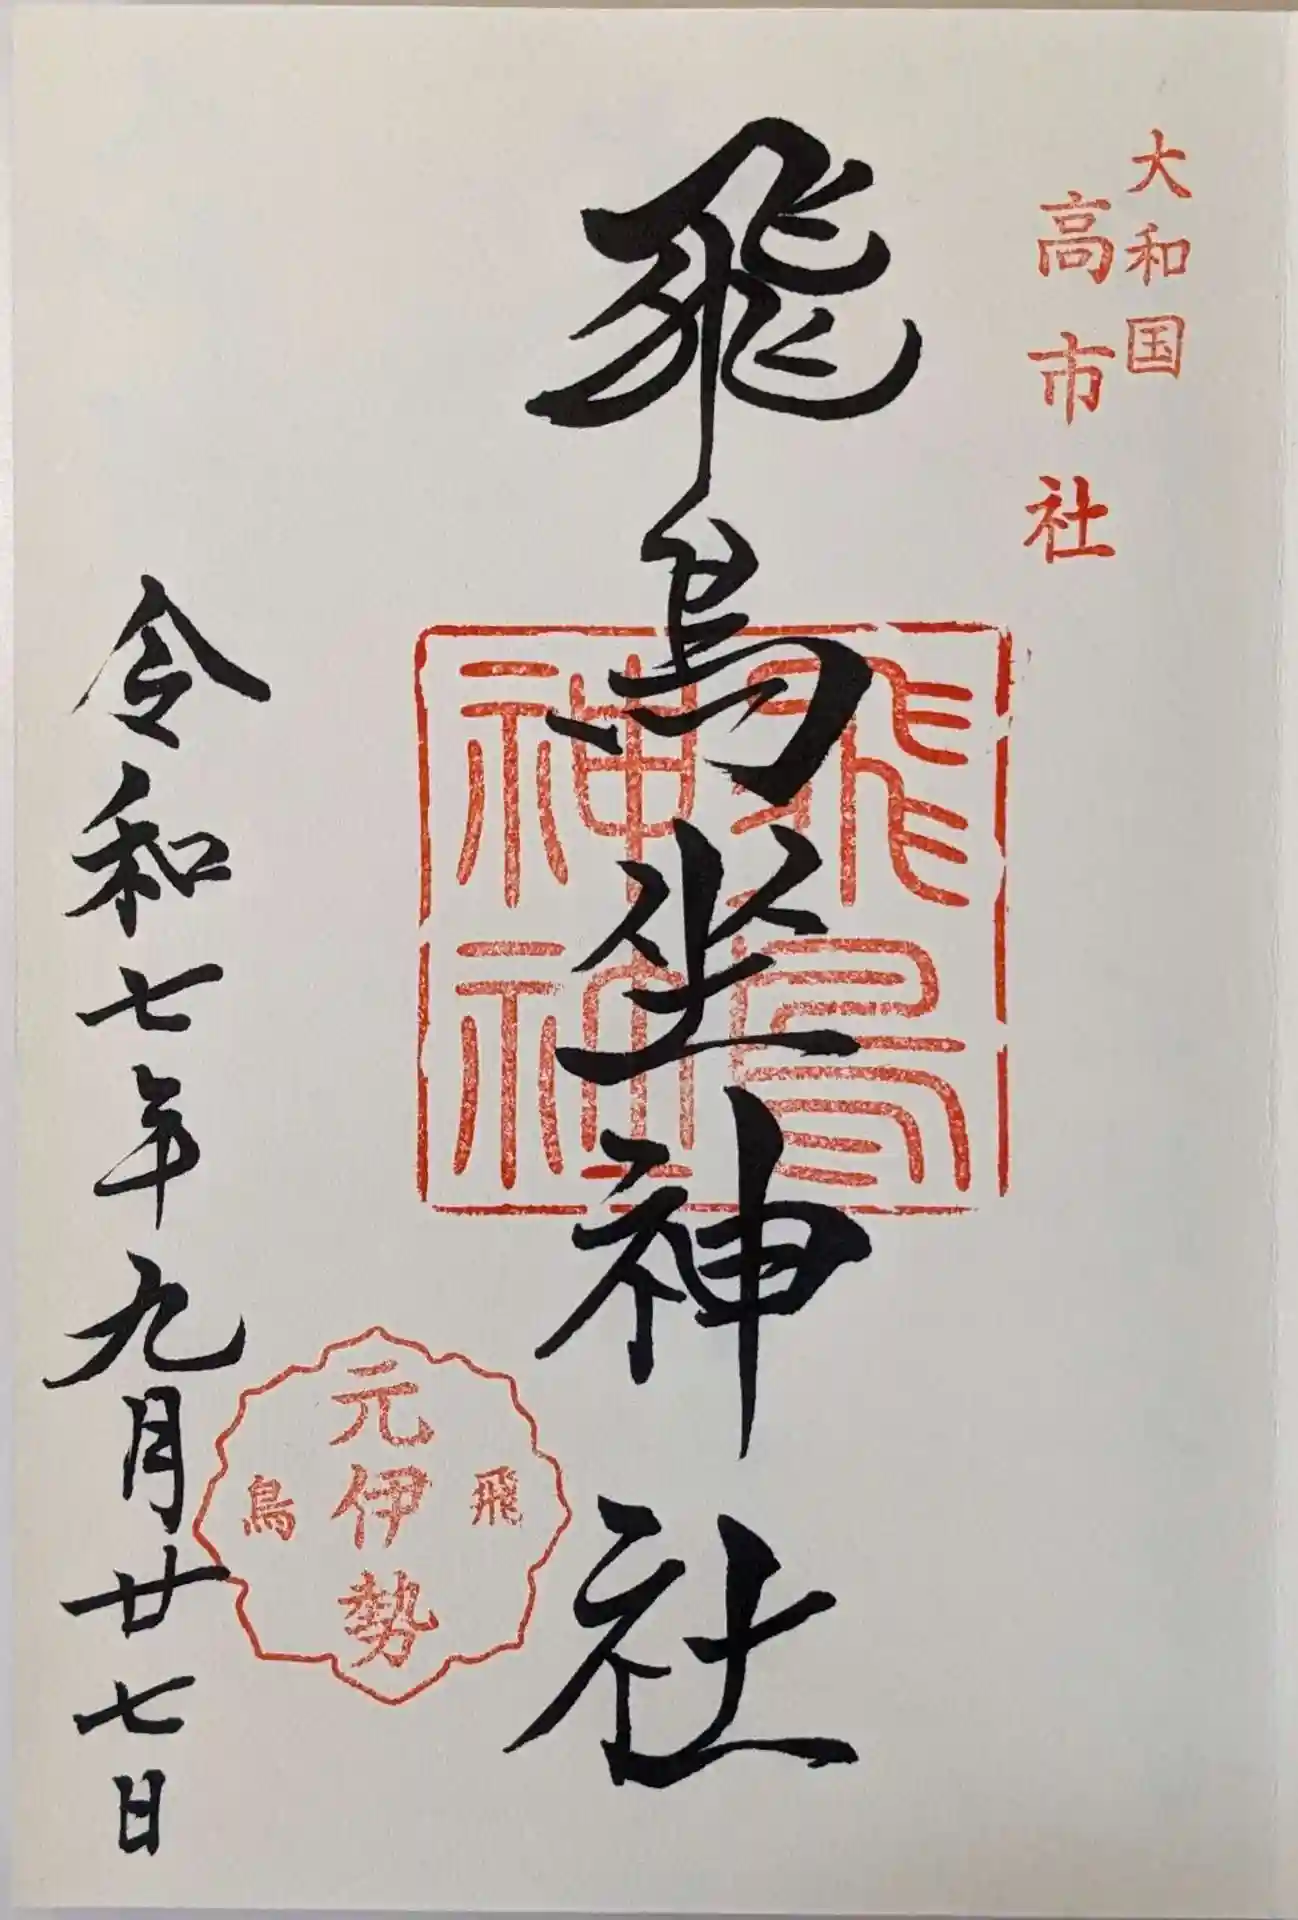 大和国
高市社
飛鳥坐神社
飛鳥
神社
元伊勢
飛鳥
令和七年九月廿七日